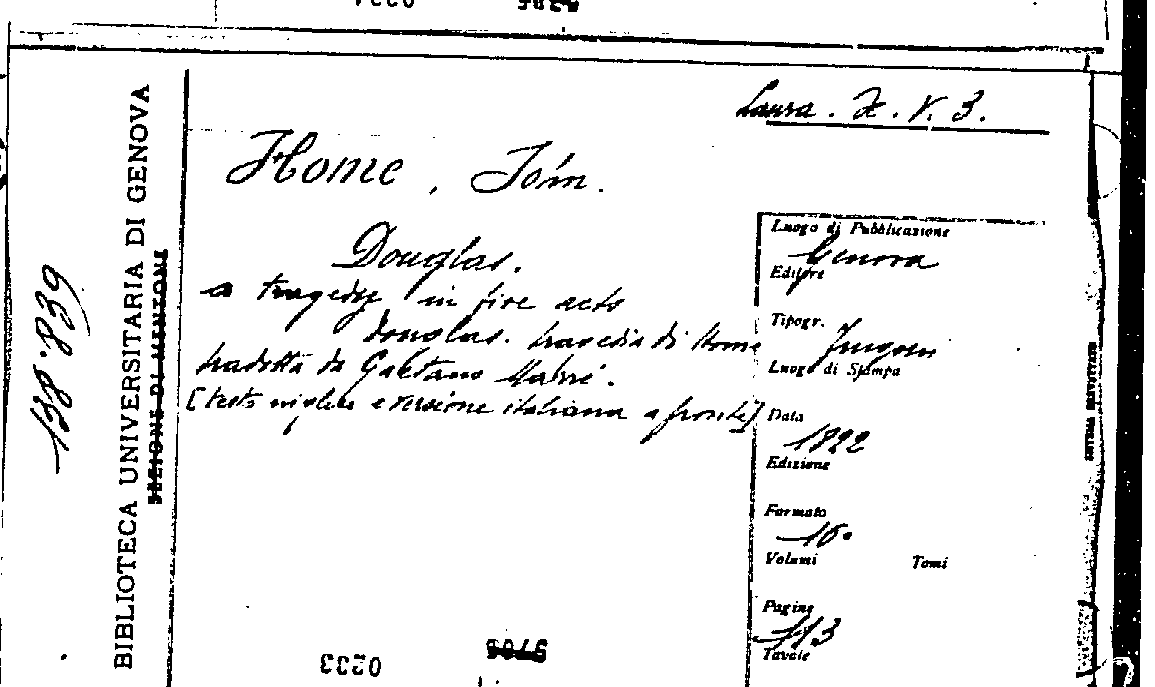 Laura. X. V. 3.
Home, John.
Douglas.
a tragedy in five acts
Douglas. tragedia di Home
tradotta da Gaetano Marré.
[testo inglese e versione italiana a fronte]
Luogo di Pubblicazione
Genova
Editore
Tipogr.
Luogo di Stampa
Data
1822
Edizione
Formato
16°
Volumi Tomi
Pagine
113
Tavole
BIBLIOTECA UNIVERSITARIA DI GENOVA
SEZIONE DI MENTONE
138.839
0233
9706